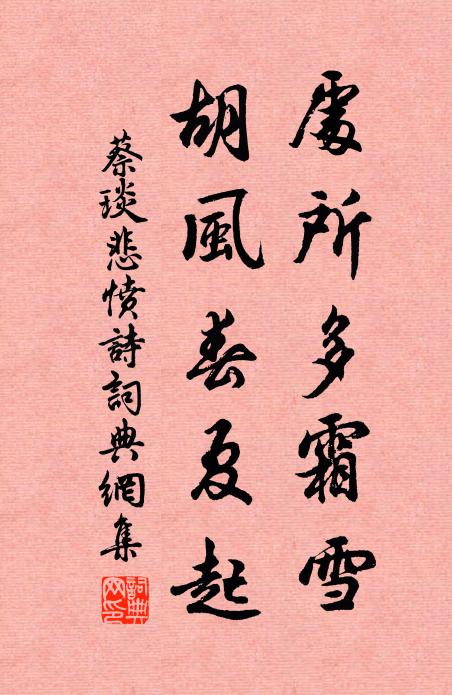 處所多霜雪
胡風春夏起
蔡琰悲憤詩詞典網集
詞典網印